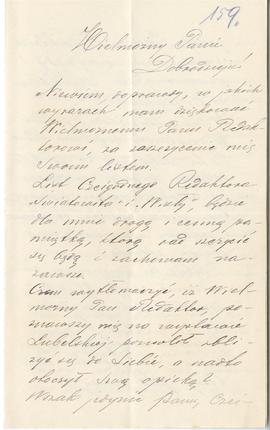 159.
Wielmożny Panie
Dobrodzieju!
Niewiem, doprawdy, w jakich
wyrazach mam dziękować
Wielmożnemu Panu Redak-
torowi, za zaszczycenie mię
Swoim listem.
List Czcigodnego Redaktora
"Światowita" i "Wisły" będzie
dla mnie drogą i cenną pa-
miątką, którą
się będę i zachowam na
zawsze.
Czem wytłomaczyć, iż Wiel-
możny Pan Redaktor, po-
znawszy mię na wystawie
Lubelskiej pozwolił zbli-
żyć się do Siebie, a nadto
otoczył swą opieką?
Wszak jedynie Panu, Czci-